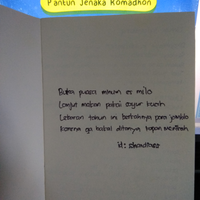 Pantun Jenaka Romadhon
Buka puasa minum es milo
Lanjut makan pakai sayur kacih
Lebaran tahun ini berkahnya para jomblo
Karena ga bakal ditanya kapan menikah